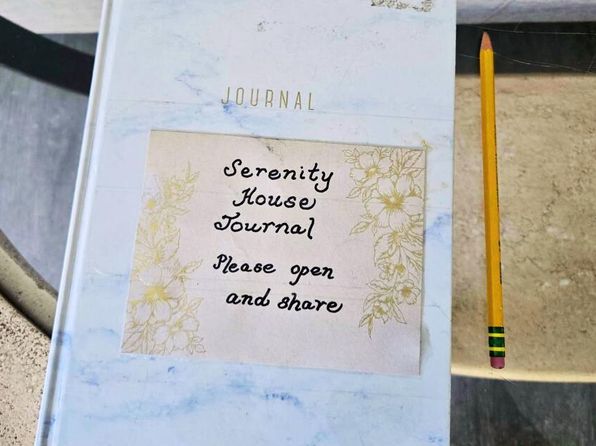 JOURNAL
Serenity
House
Journal
Please open
and share